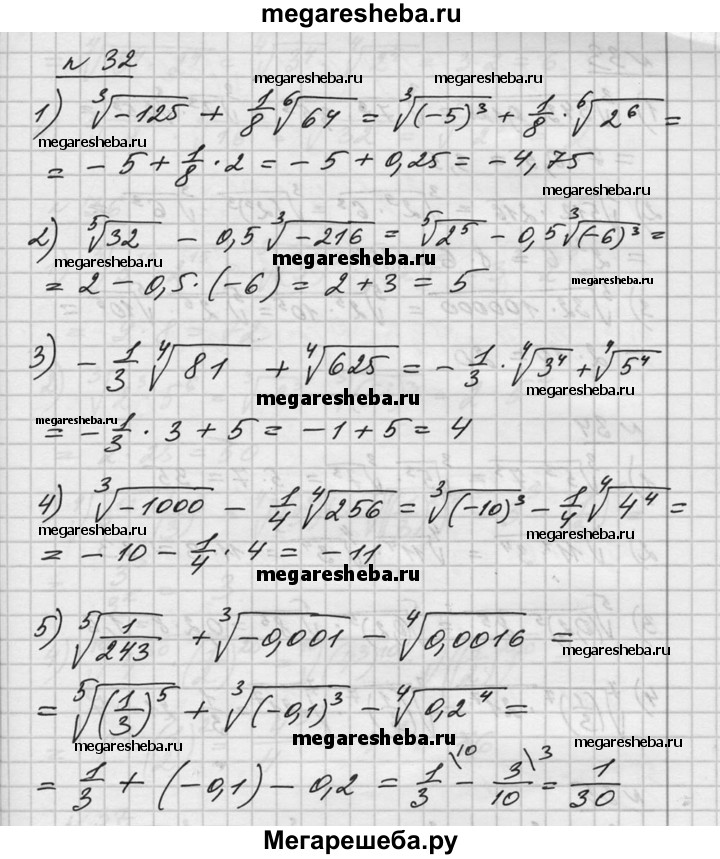 megaresheba.ru
n 32
megaresheba.ru megaresheba.ru
1) ∛-125 + 1/8 ⁶√64 = ∛(-5)³ + 1/8 · ⁶√2⁶ =
megaresheba.ru
= -5 + 1/8 · 2 = -5 + 0,25 = -4,75
megaresheba.ru
2) ⁵√32 - 0,5 ∛-216 = ⁵√2⁵ - 0,5 ∛(-6)³ =
megaresheba.ru megaresheba.ru
= 2 - 0,5 · (-6) = 2 + 3 = 5
megaresheba.ru
3) - 1/3 ⁴√81 + ⁴√625 = - 1/3 · ⁴√3⁴ + ⁴√5⁴
megaresheba.ru megaresheba.ru
megaresheba.ru
= - 1/3 · 3 + 5 = -1 + 5 = 4
megaresheba.ru
4) ∛-1000 - 1/4 ⁴√256 = ∛(-10)³ - 1/4 ⁴√4⁴ =
megaresheba.ru megaresheba.ru
= -10 - 1/4 · 4 = -11
megaresheba.ru
5) ⁵√1/243 + ∛-0,001 - ⁴√0,0016 =
megaresheba.ru
= ⁵√(1/3)⁵ + ∛(-0,1)³ - ⁴√0,2⁴ =
megaresheba.ru megaresheba.ru megaresheba.ru
= 1/3 + (-0,1) - 0,2 = 1/3 \10 - 3/10 \3 = 1/30
Мегарешеба.ру